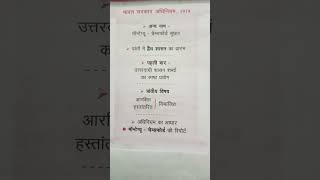 भारत सरकार अधिनियम, 1919
➤ अन्य नाम -
मॉन्टेग्यू - चेम्सफोर्ड सुधार
➤ प्रांतों में द्वैध शासन का प्रारम्भ
➤ पहली बार -
उत्तरदायी शासन शब्दों
का स्पष्ट प्रयोग
➤ प्रांतीय विषय
आरक्षित
हस्तांतरित
विभाजित
➤ अधिनियम का आधार
मॉन्टेग्यू - चेम्सफोर्ड की रिपोर्ट